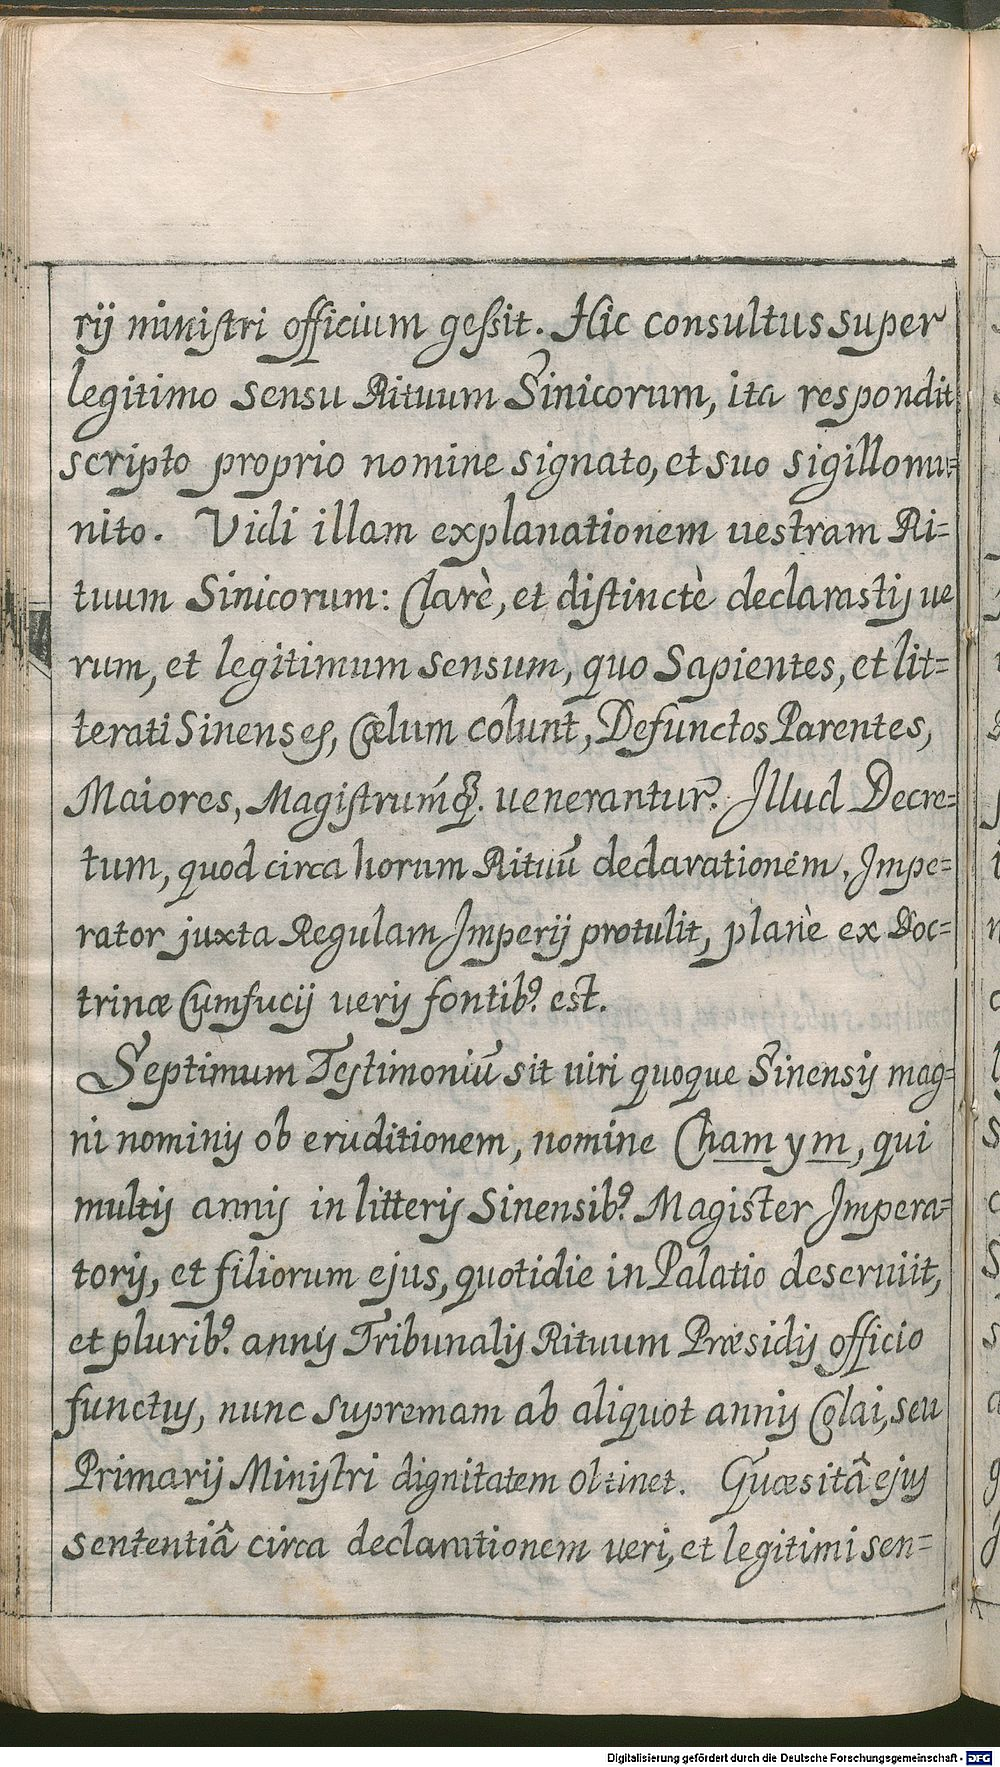 rij miniſtri officium geſsit. Hic consultus super
legitimo sensu Rituum Sinicorum, ita respondit
scripto proprio nomine signato, et suo sigillo mu=
nito. Vidi illam explanationem vestram Ri=
tuum Sinicorum: Clarè, et diſtinctè declarastis ve
rum, et legitimum sensum, quo Sapientes, et lit=
terati Sinenses, Cœlum colunt, Defunctos Parentes,
Maiores, Magiſtrumq́;. venerantur. Illud Decre=
tum, quod circa horum Rituū declarationem, Impe=
rator juxta Regulam Imperij protulit, planè ex Doc=
trinæ Cumfucij veris fontib9. est.
Septimum Testimoniū sit viri quoque Sinensis mag=
ni nominis ob eruditionem, nomine Cham ym, qui
multis annis in litteris Sinensib9. Magister Impera=
toris, et filiorum ejus, quotidie in Palatio deseruiit,
et plurib9. annis Tribunalis Rituum Præsidis officio
functus, nunc supremam ab aliquot annis Colai, seu
Primarij Ministri dignitatem obtinet. Quæsitâ ejus
sententiâ circa declarationem veri, et legitimi sen=
Digitalisierung gefördert durch die Deutsche Forschungsgemeinschaft - DFG